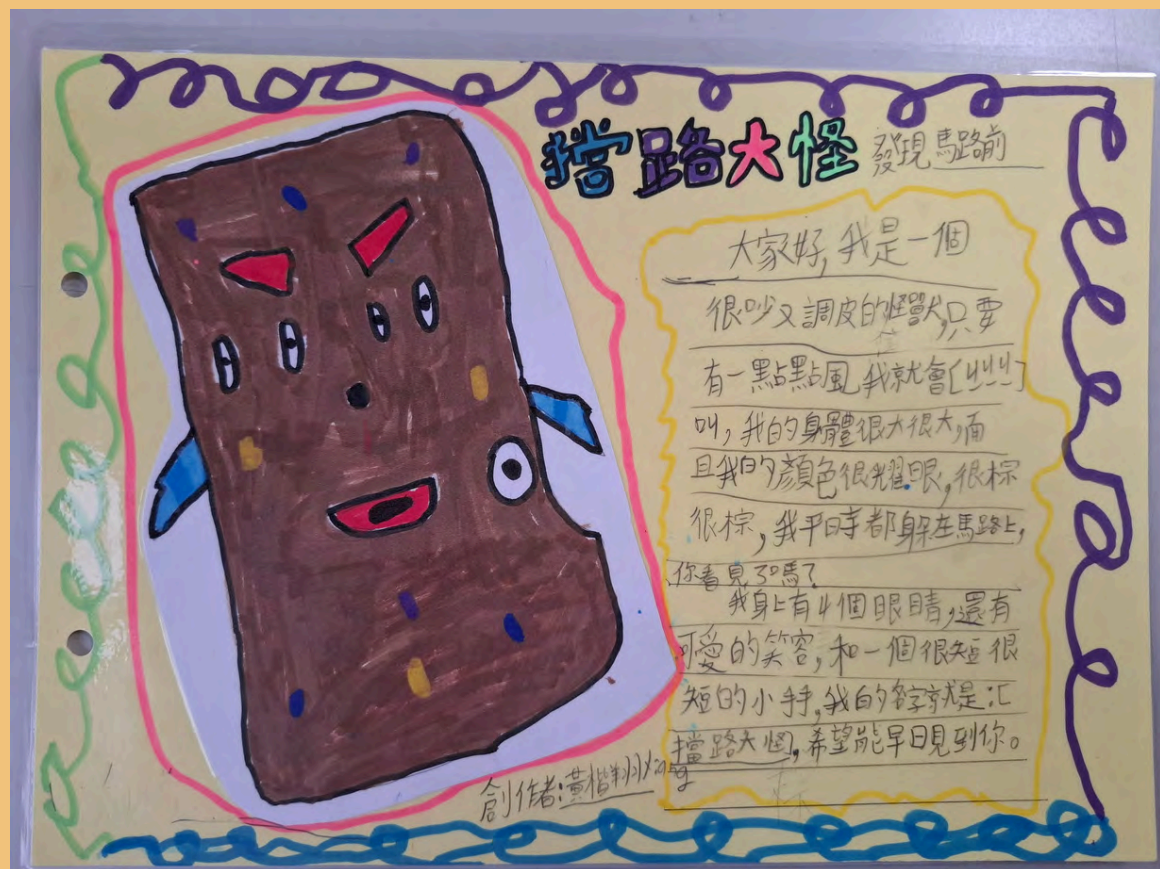 擋路大怪
發現馬路前
大家好,我是一個
很吵又調皮的怪獸,只要
有一點點風,我就會[ㄐㄐㄐ]
叫,我的身體很大很大,而
且我的顏色很耀眼,很棕
很棕,我平時都躲在馬路上,
你看見了嗎?
我身上有4個眼睛,還有
可愛的笑容,和一個很短很
短的小手,我的名字就是:
擋路大怪,希望能早日見到你。
創作者:黃楷翔